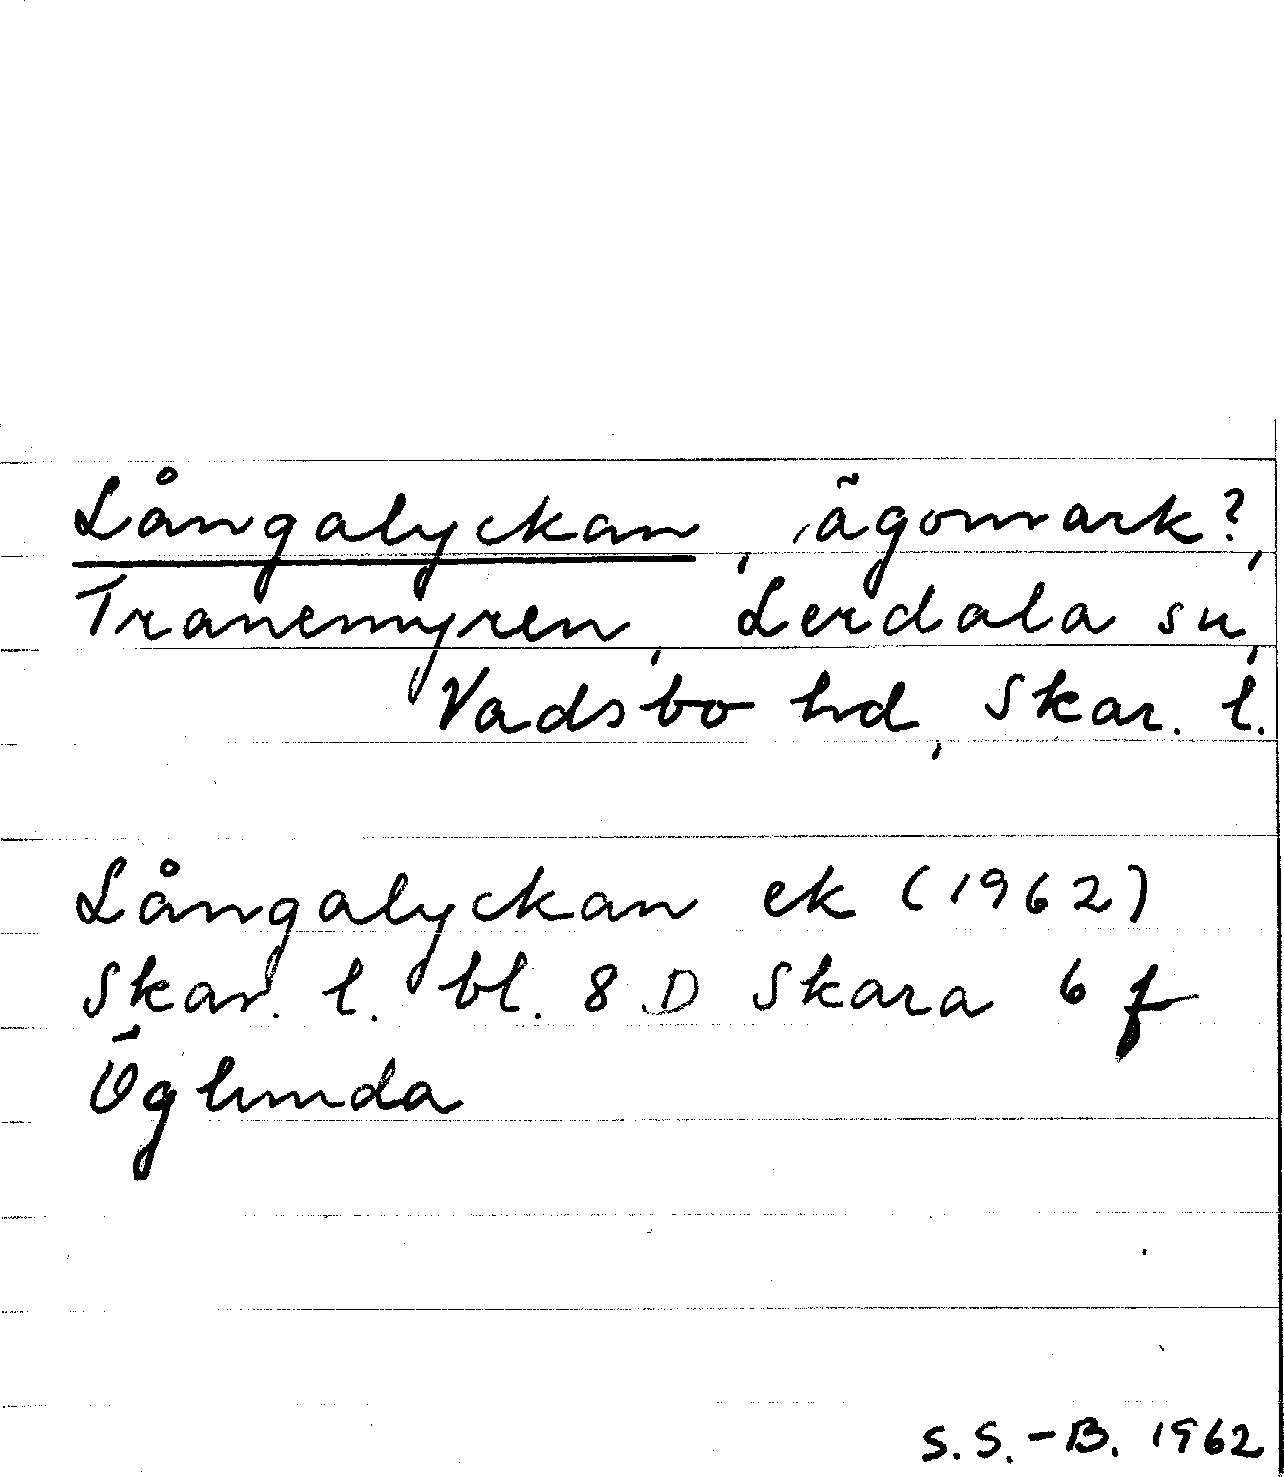 Långalyckan, ägomark?,
Tranemyren, Lerdala sn,
Vadsbo hd, Skar. l.
Långalyckan ek (1962)
Skar. l. bl. 8 D Skara 6 f
Öglunda
S.S.-B. 1962